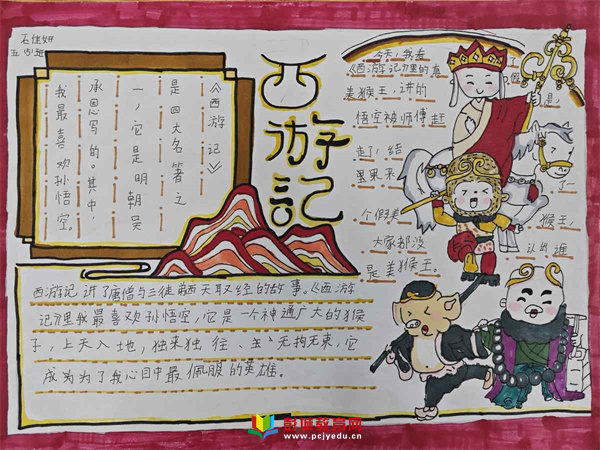 石佳妍
五(3)班
西游記
《西游记》
是四大名著之
一,它是明朝吴
承恩写的。其中,
我最喜欢孙悟空。
今天,我看了
《西游记》里的真假
美猴王,讲的是,
悟空被师傅赶
走了!结果来了一
个假美猴王,
大家都没认出谁
是美猴王。
西游记讲了唐僧与三徒弟西天取经的故事。《西游
记》里我最喜欢孙悟空,它是一个神通广大的猴
子,上天入地,独来独往、无拘无束,它
成为为了我心目中最佩服的英雄。
www.pcjyedu.cn